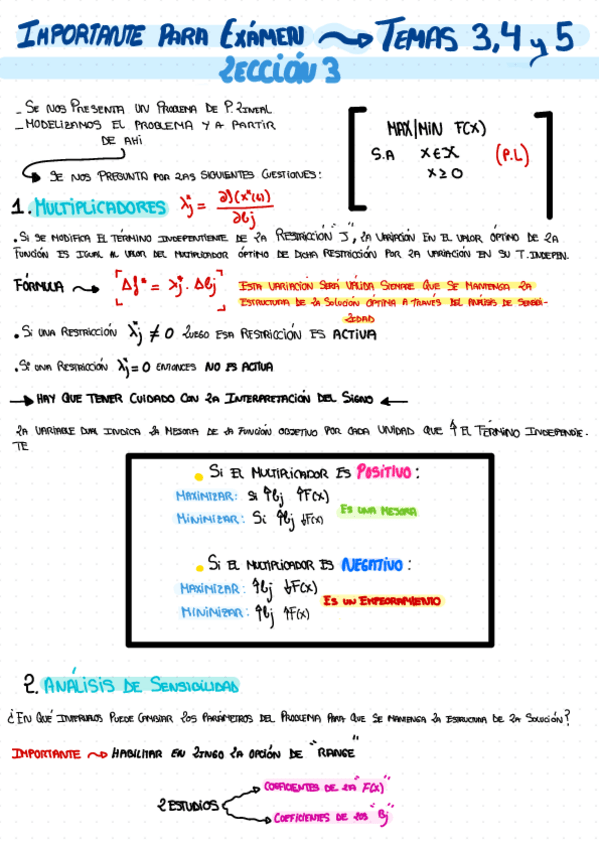 IMPORTANTE PARA EXÁMEN ⤳ TEMAS 3,4 y 5
LECCIÓN 3
_ SE NOS PRESENTA UN PROBLEMA DE P. LINEAL
_ MODELIZAMOS EL PROBLEMA Y A PARTIR
DE AHI
→ SE NOS PREGUNTA POR LAS SIGUIENTES CUESTIONES:
MAX/MIN F(X)
S.A X∈X (P.L)
X≥0
1. MULTIPLICADORES λj* = ∂f(x*(b)) / ∂bj
• SI SE MODIFICA EL TÉRMINO INDEPENDIENTE DE LA RESTRICCIÓN "J", LA VARIACIÓN EN EL VALOR ÓPTIMO DE LA
FUNCIÓN ES IGUAL AL VALOR DEL MULTIPLICADOR ÓPTIMO DE DICHA RESTRICCIÓN POR LA VARIACIÓN EN SU T. INDEPEN.
FÓRMULA ⤳ [Δf* = λj* · Δbj] ESTA VARIACIÓN SERÁ VÁLIDA SIEMPRE QUE SE MANTENGA LA
ESTRUCTURA DE LA SOLUCIÓN ÓPTIMA A TRAVÉS DEL ANÁLISIS DE SENSIBI-
LIDAD
• SI UNA RESTRICCIÓN λj* ≠ 0 LUEGO ESA RESTRICCIÓN ES ACTIVA
• SI UNA RESTRICCIÓN λj* = 0 ENTONCES NO ES ACTIVA
→ HAY QUE TENER CUIDADO CON LA INTERPRETACIÓN DEL SIGNO ←
LA VARIABLE DUAL INDICA LA MEJORA DE LA FUNCIÓN OBJETIVO POR CADA UNIDAD QUE ↑ EL TÉRMINO INDEPENDIE.
TE
• SI EL MULTIPLICADOR ES POSITIVO:
MAXIMIZAR: SI ↑bj ↑F(x)
MINIMIZAR: SI ↑bj ↓F(x)
ES UNA MEJORA
• SI EL MULTIPLICADOR ES NEGATIVO:
MAXIMIZAR: ↑bj ↓F(x)
MINIMIZAR: ↑bj ↑F(x)
ES UN EMPEORAMIENTO
2. ANÁLISIS DE SENSIBILIDAD
¿EN QUÉ INTERVALOS PUEDE CAMBIAR LOS PARÁMETROS DEL PROBLEMA PARA QUE SE MANTENGA LA ESTRUCTURA DE LA SOLUCIÓN?
IMPORTANTE ⤳ HABILITAR EN LINGO LA OPCIÓN DE "RANGE"
2 ESTUDIOS
→ COEFICIENTES DE LA "F(X)"
→ COEFICIENTES DE LOS "Bj"